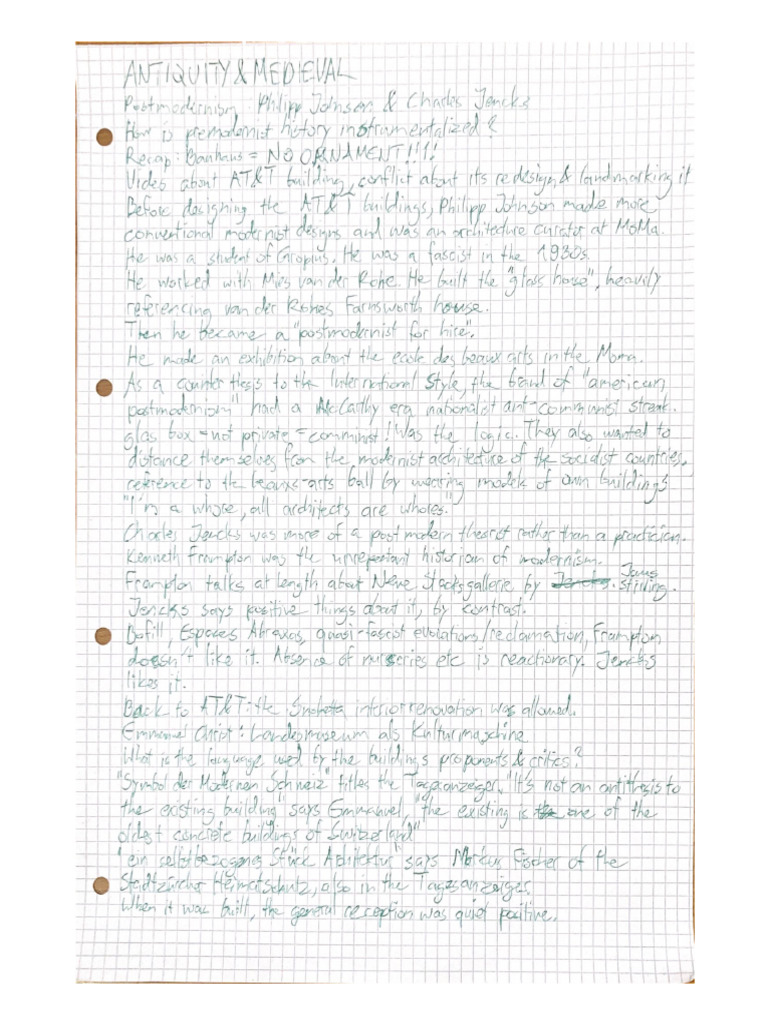 ANTIQUITY & MEDIEVAL
Postmodernism: Philipp Johnson & Charles Jencks
How is premodernist history instrumentalized?
Recap: Bauhaus = NO ORNAMENT!!!!
Video about AT&T building, conflict about its redesign & landmarking it
Before designing the AT&T buildings, Philipp Johnson made more
conventional modernist designs and was an architecture curator at MoMa.
He was a student of Gropius. He was a fascist in the 1930s.
He worked with Mies van der Rohe. He built the "glass house", heavily
referencing van der Rohes Farnsworth house.
Then he became a "postmodernist for hire".
He made an exhibition about the ecole des beaux arts in the Moma.
As a counter thesis to the International Style, the brand of "american
postmodernism" had a McCarthy era nationalist anti-communist streak.
glas box = not private = communist! Was the logic. They also wanted to
distance themselves from the modernist architecture of the socialist countries.
reference to the beauxs-arts ball by wearing models of own buildings
"I'm a whore, all architects are whores."
Charles Jencks was more of a postmodern theorist rather than a practician.
Kenneth Frampton was the unrepentant historian of modernism.
Frampton talks at length about Neue Staatsgallerie by Jencks. James Stirling.
Jencks says positive things about it, by contrast.
Bofill, Espaces Abraxas, quasi-fascist evolutions/reclamation, Frampton
doesn't like it. Absence of nurseries etc is reactionary. Jencks
likes it.
Back to AT&T: the Snøhetta interior renovation was allowed.
Emmanuel Christ: Landesmuseum als Kulturmaschine
What is the language used by the buildings proponents & critics?
"Symbol der Modernen Schweiz" titles the Tagesanzeiger, "It's not an antithesis to
the existing building" says Emmanuel, "the existing is one of the
oldest concrete buildings of Switzerland"
"ein selbstbezogenes Stück Architektur" says Markus Fischer of the
Stadtzürcher Heimatschutz, also in the Tagesanzeiger.
When it was built, the general reception was quiet positive.